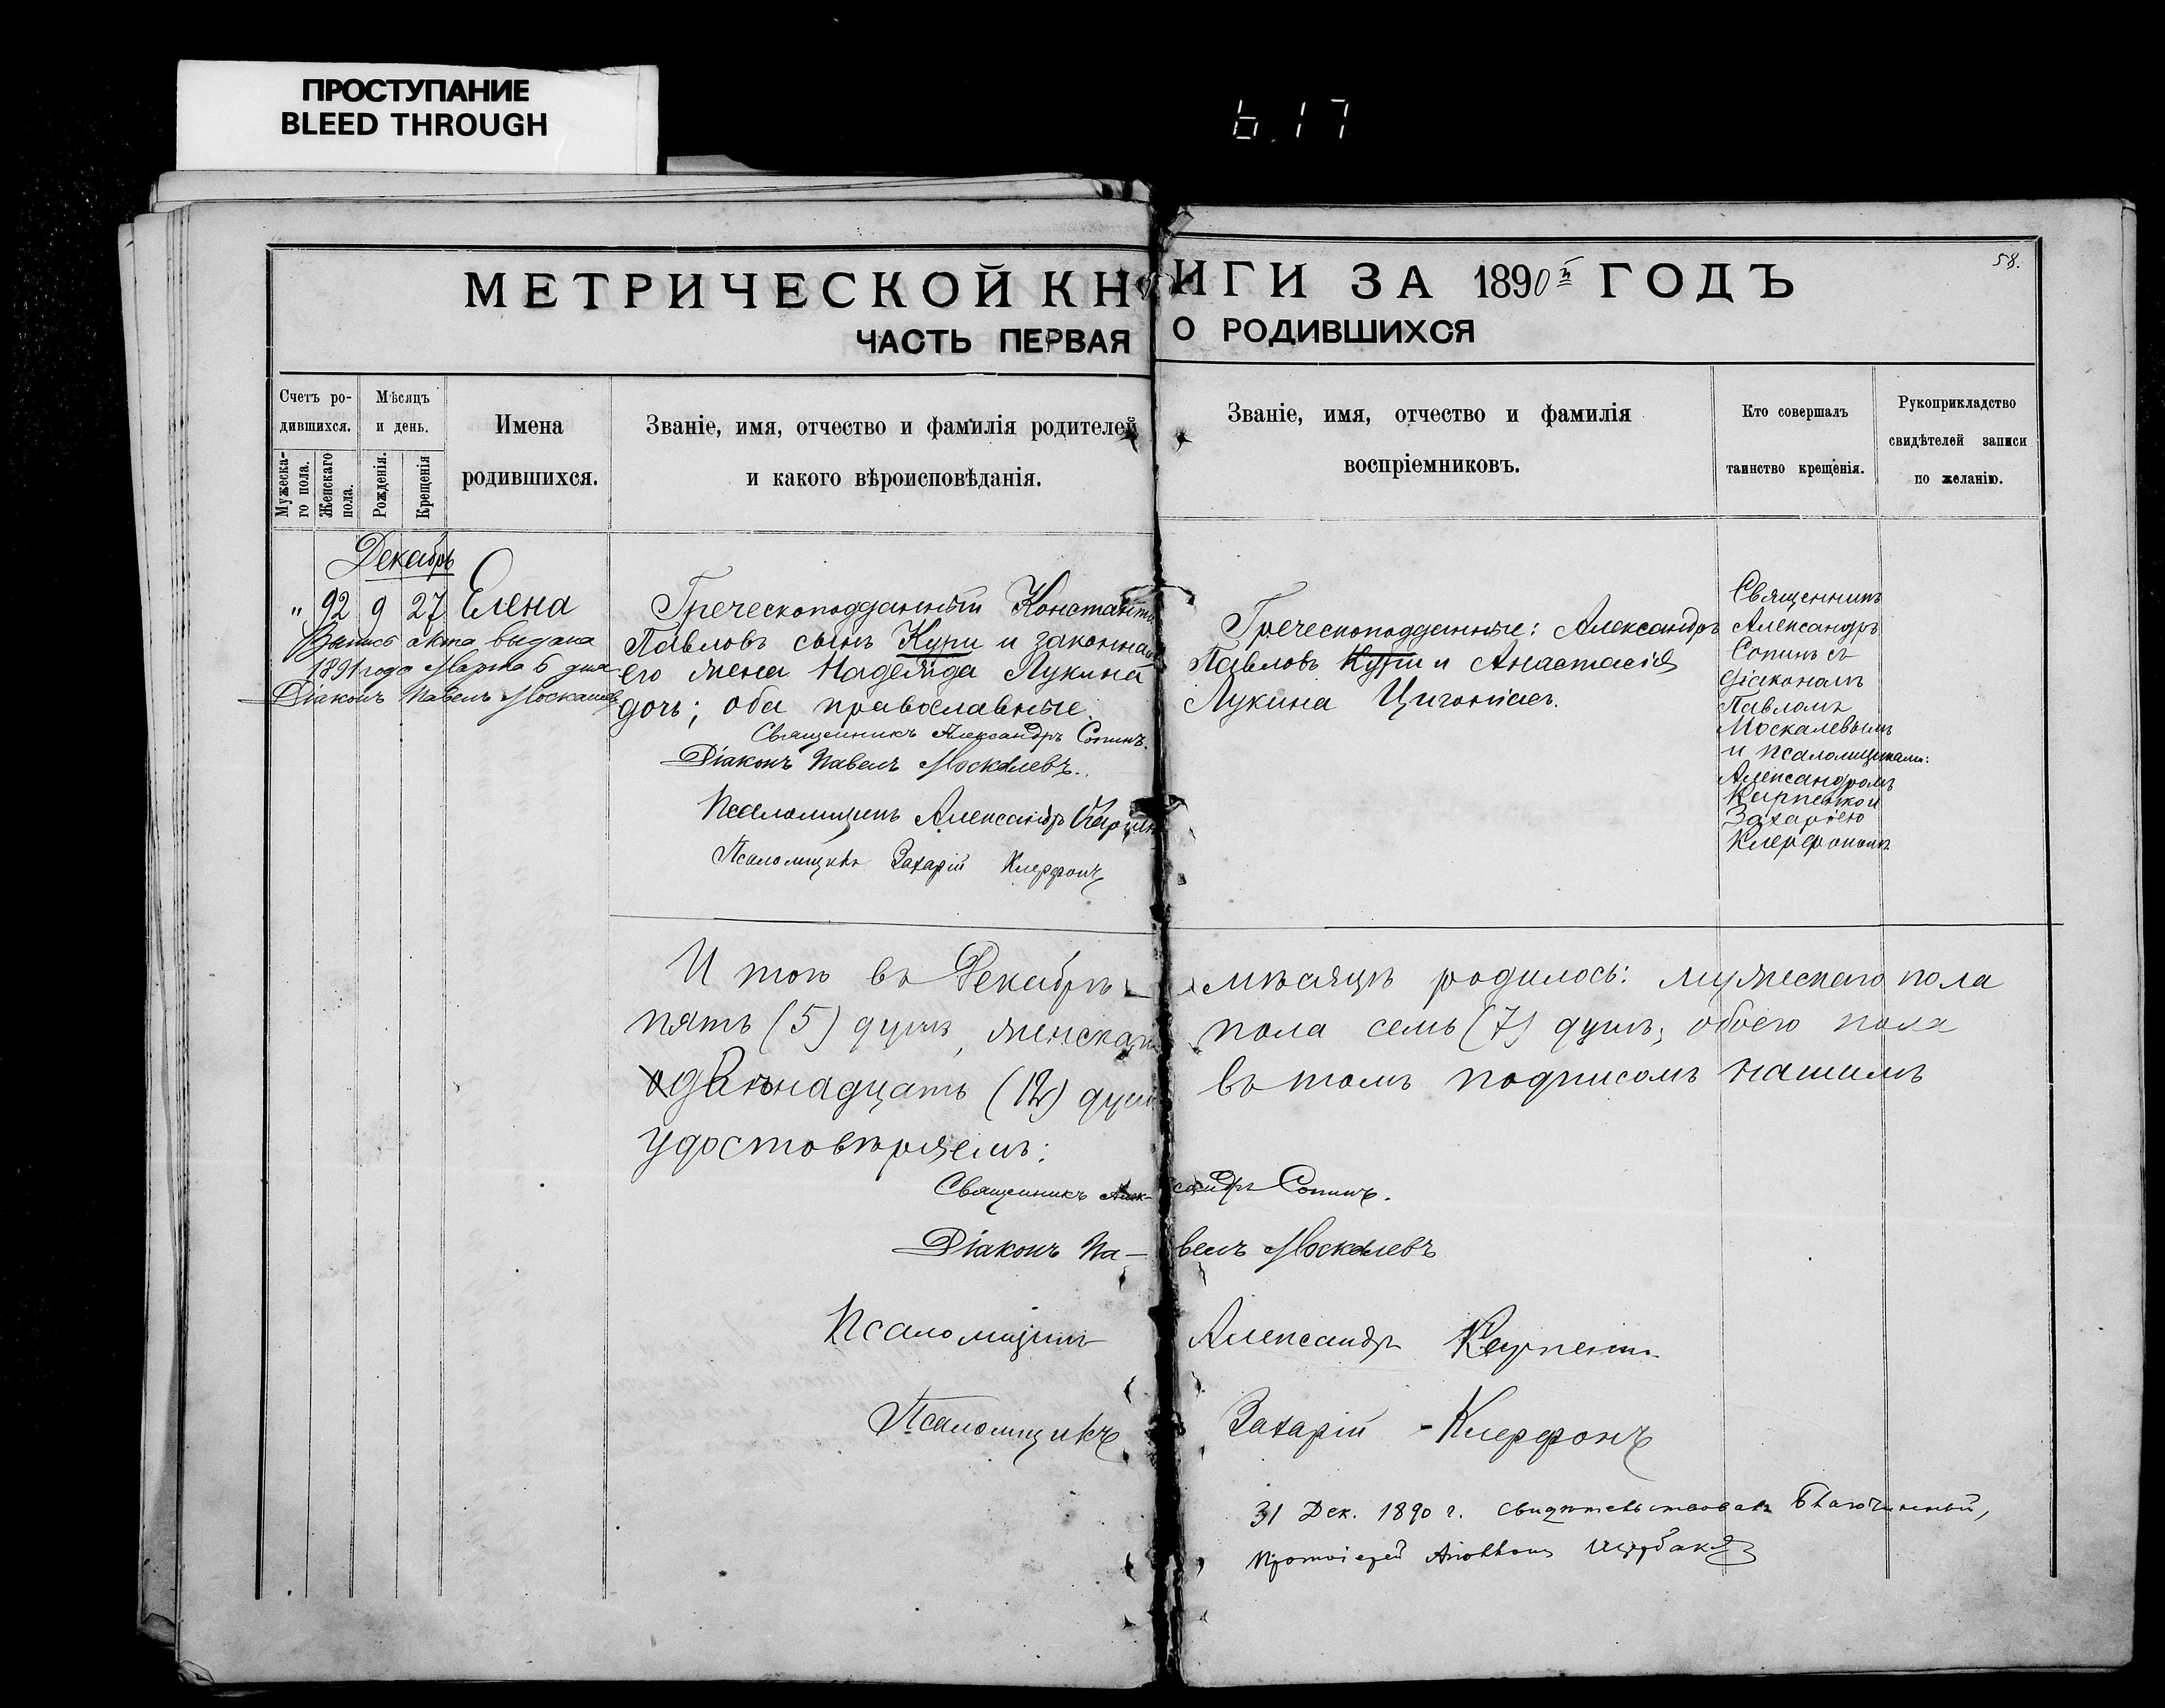 ПРОСТУПАНИЕ
BLEED THROUGH
6.17
58.
МЕТРИЧЕСКОЙ КНИГИ ЗА 1890й ГОДЪ
ЧАСТЬ ПЕРВАЯ О РОДИВШИХСЯ
Счетъ ро-
дившихся.
Мужеска-
го пола.
Женскаго
пола.
Мѣсяцъ
и день.
Рожденія.
Крещенія
Имена
родившихся.
Званіе, имя, отчество и фамилія родителей
и какого вѣроисповѣданія.
Званіе, имя, отчество и фамилія
воспріемниковъ.
Кто совершалъ
таинство крещенія.
Рукоприкладство
свидѣтелей записи
по желанію.
Декабрь
" 92 9 27 Елена
Запись акта выдана
1891 года Марта 6 дня
Діаконъ Павелъ Москалевъ
Греческоподданный Константинъ
Павловъ сынъ Кури и законная
его жена Надежда Лукина
дочь; оба православные.
Священникъ Александръ Сопинъ.
Діаконъ Павелъ Москалевъ.
Псаломщикъ Александръ
Псаломщикъ Захарій Клерфонъ
Греческоподданные: Александръ
Павловъ Кури и Анастасія
Лукина
Священникъ
Александръ
Сопинъ съ
діакономъ
Павломъ
Москалевымъ
и псаломщиками:
Александромъ
Карпенкой
Захаріею
Клерфономъ
Итого въ Декабрѣ мѣсяцѣ родилось: мужескаго пола
пять (5) душъ, женскаго пола семь (7) душъ; обоего пола
двѣнадцать (12) душъ въ томъ подписомъ нашимъ
удостовѣряемъ:
Священникъ Александръ Сопинъ.
Діаконъ Павелъ Москалевъ
Псаломщикъ Александръ Карпенко
Псаломщикъ Захарій Клерфонъ
31 Дек. 1890 г. свидѣтельствовалъ Благочинный,
Протоіерей